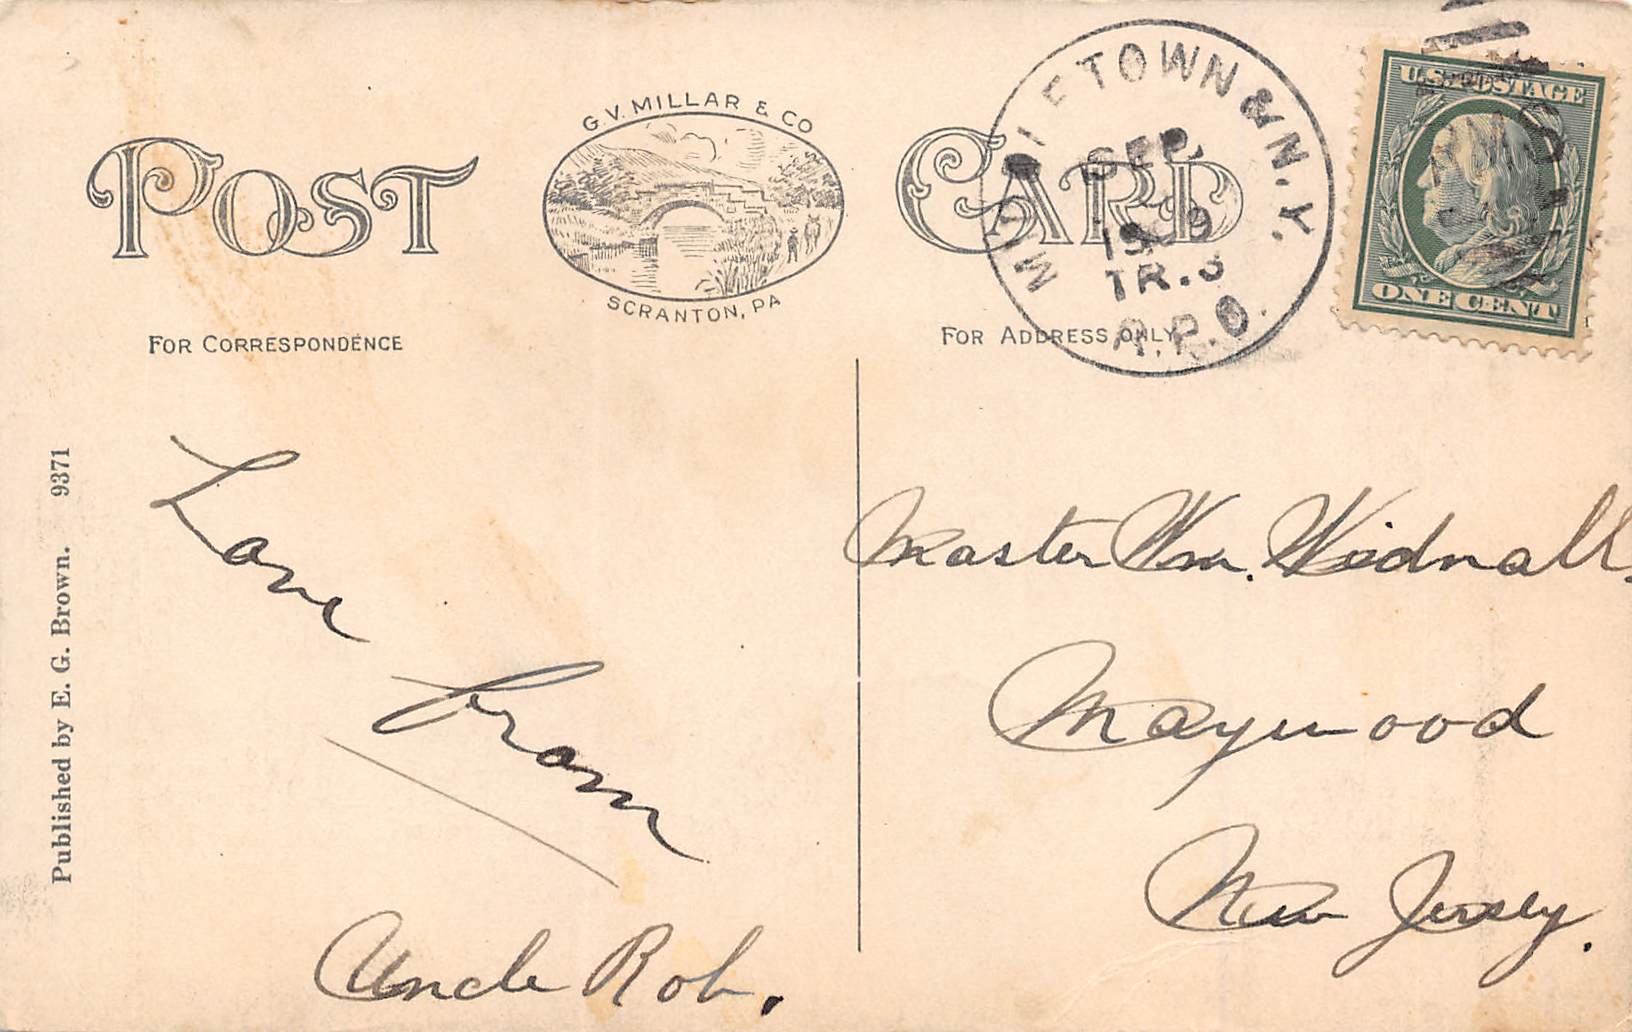 POST CARD
G.V. MILLAR & CO
SCRANTON, PA
FOR CORRESPONDENCE
FOR ADDRESS ONLY
TOWN & N.Y.
SEP.
TR. 3
R.P.O.
U.S. POSTAGE
ONE CENT
Published by E. G. Brown. 9371
Love
from
Uncle Rob.
Master Wm. Widnall.
Maywood
New Jersey.